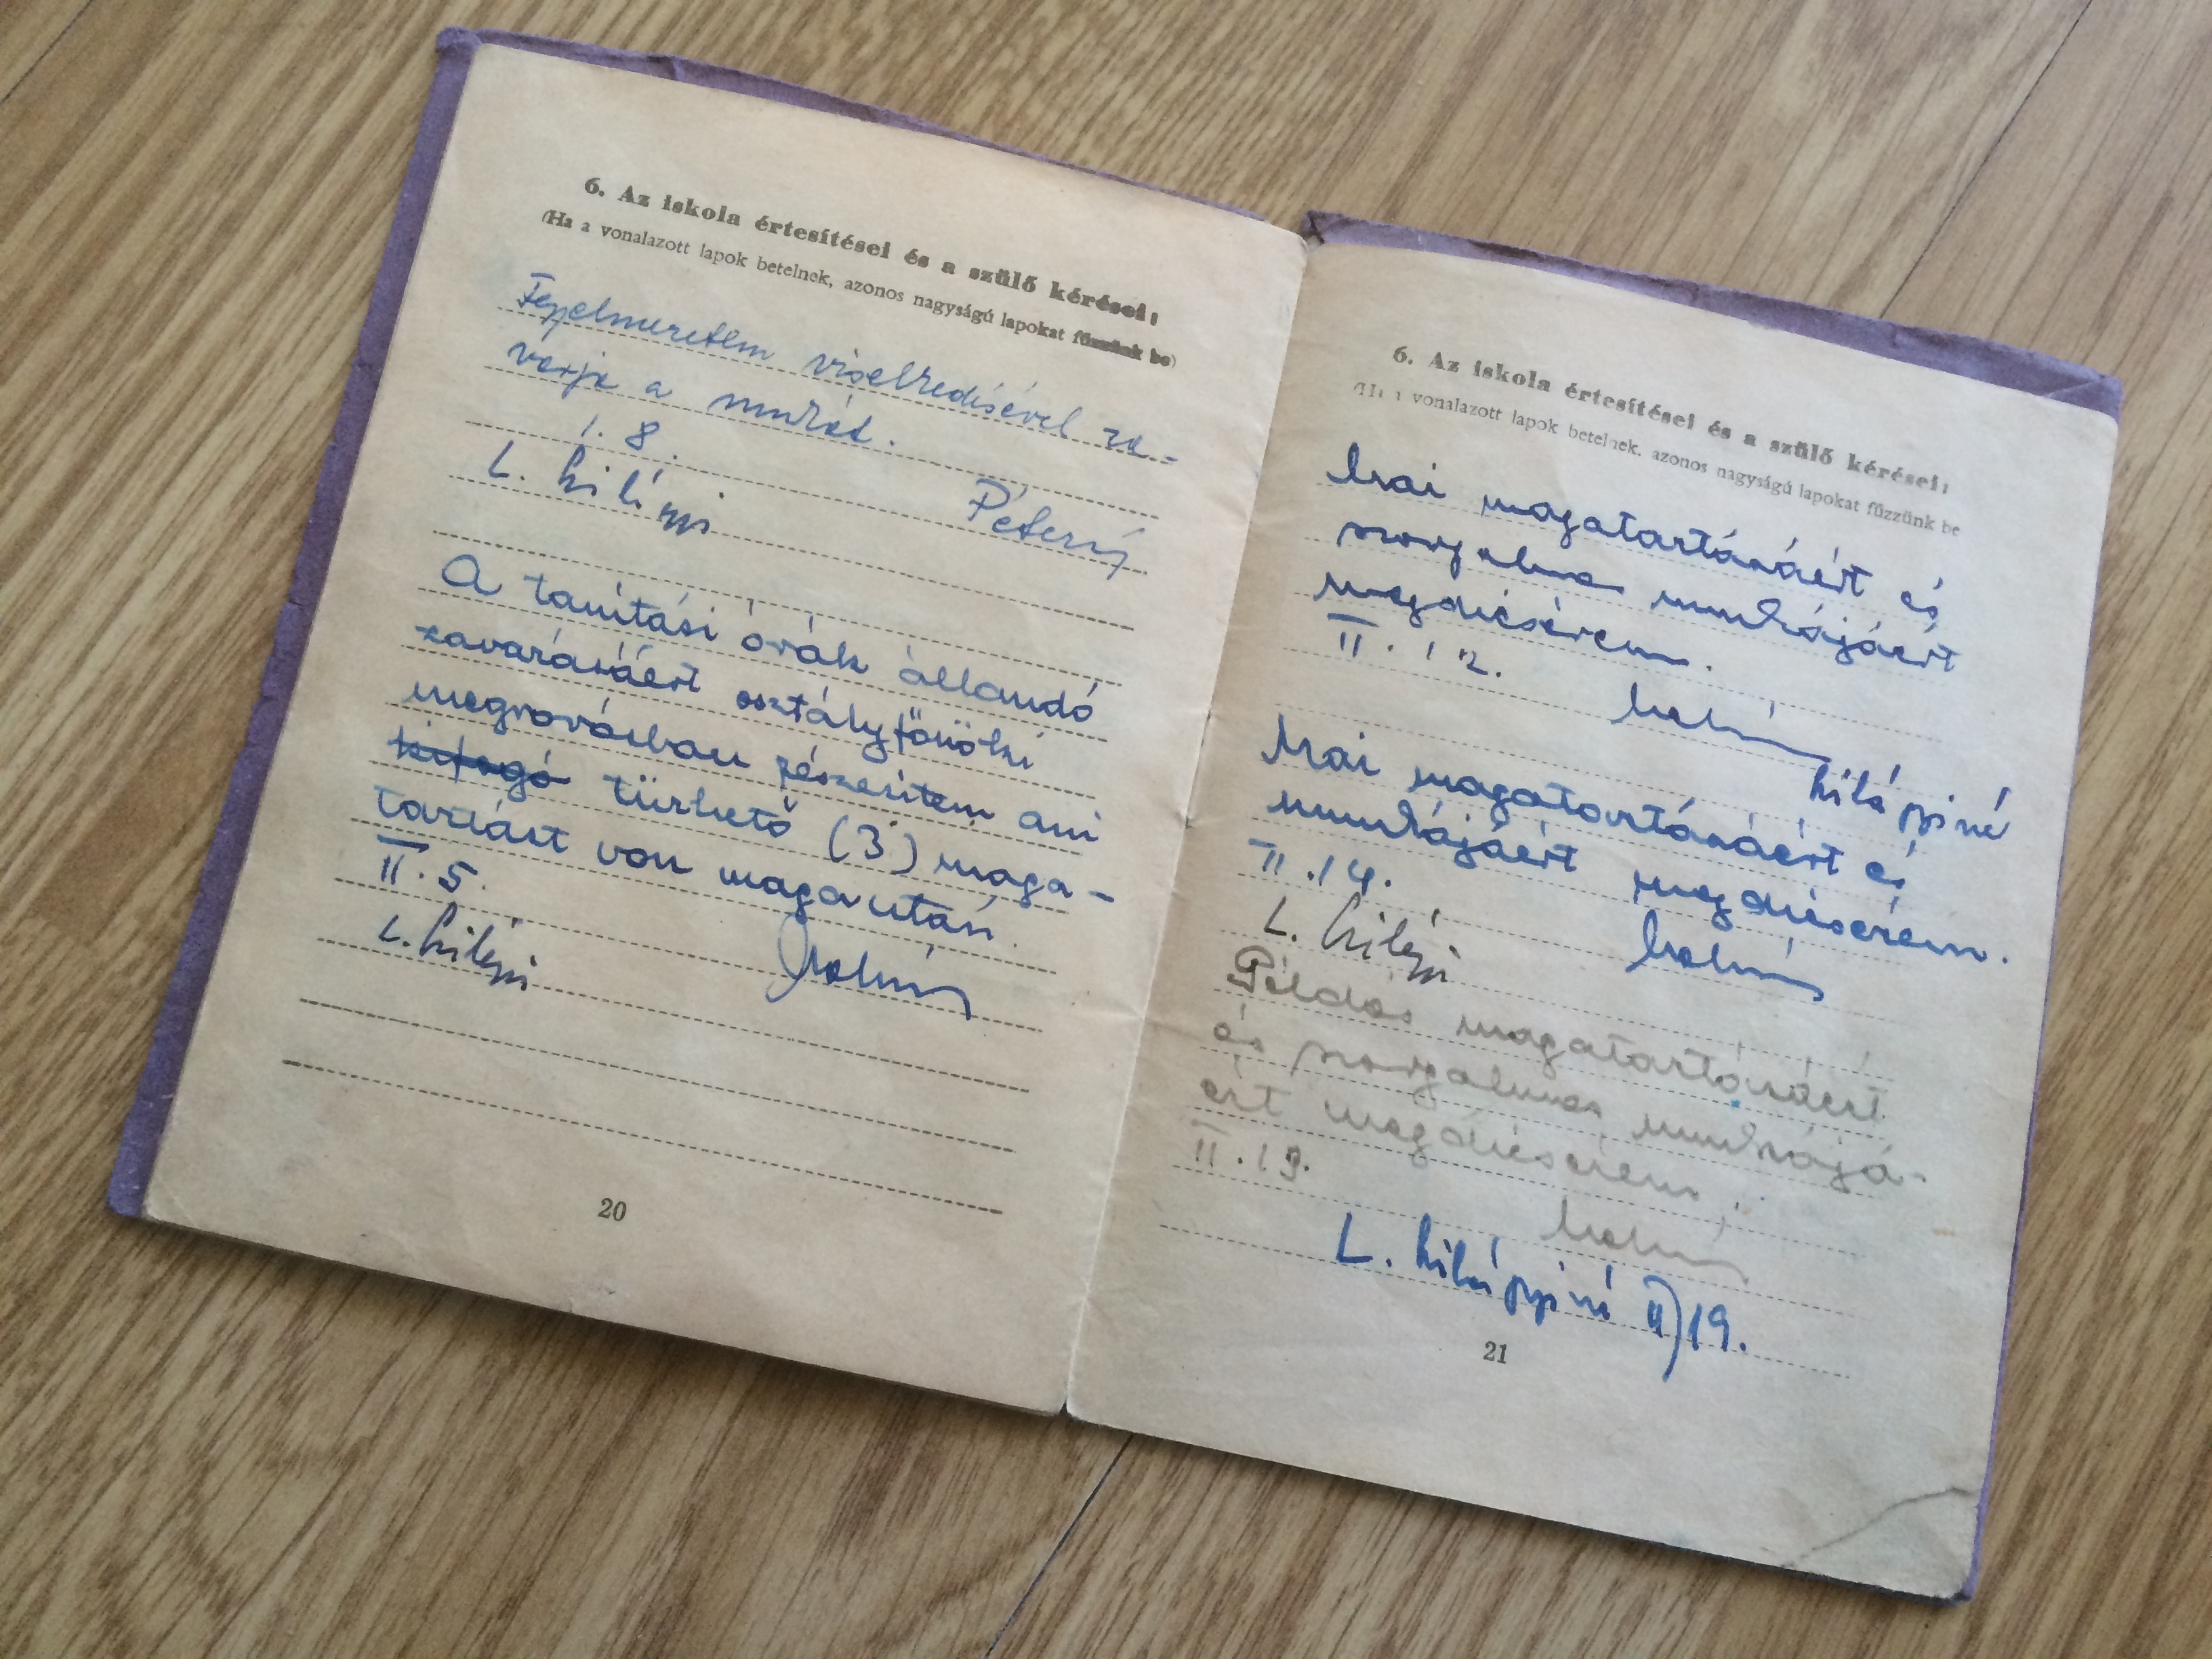 6. Az iskola értesítései és a szülő kérései:
(Ha a vonalazott lapok betelnek, azonos nagyságú lapokat fűzzünk be)
Fegyelmezetlen viselkedésével za-
varja a munkát.
1. 8.
L. Kilépi
A tanítási órák állandó
zavarásáért osztályfőnöki
megrovásban részesítem ami
kifogó türhető (3) maga-
tartást von maga után.
II. 5.
L. Kilépi
20
6. Az iskola értesítései és a szülő kérései:
(Ha a vonalazott lapok betelnek, azonos nagyságú lapokat fűzzünk be
Mai magatartásáért és
szorgalmas munkájáért
megdicsérem.
II. 12.
Mai magatartásáért és
munkájáért megdicsérem.
II. 14.
L. Kilépi
Példás magatartásáért
és szorgalmas munkájá-
ért megdicsérem.
II. 19.
L. II) 19.
21